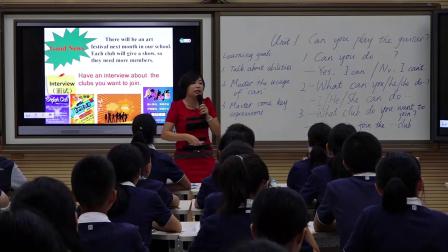 Good News
There will be an art
festival next month in our school.
Each club will give a show, so
they need more members.
Interview
(面试)
Have an interview about the
clubs you want to join.
Unit 1 Can you play the guitar?
Learning goals
1. Talk about abilities
2. Master the usage
of can
3. Master some key
expressions
1. Can you do ?
— Yes, I can / No, I can't
2. — What can you/he/she do?
— He/She can do
3. — What club do you want to
join?
join the club